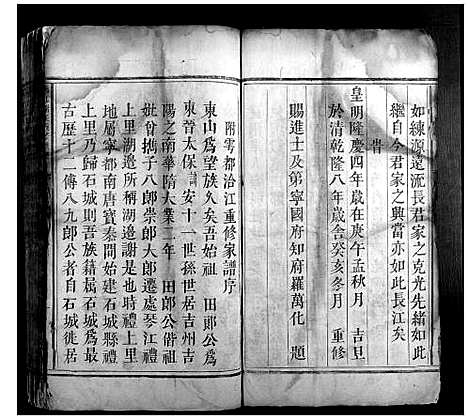 如練源遠流長君家之克光先緒如此
繼自今君家之興當亦如此長江矣
皆
皇明隆慶四年歲在庚午孟秋月　吉旦
於清乾隆八年歲舍癸亥冬月　重修
賜進士及第寧國府知府羅萬化　題
附雩都洽江重修家譜序
東山為望族久矣吾始祖　田郎公為
東晉太保安十一世孫世居吉州吉
陽之南華隋大業二年　田郎公偕祖
妣曾攜子八郎崇郎大郎遷處琴江禮
上里湖邉所稱湖邉謝是也時禮上里
地屬寧都南唐寶泰間始建石城縣禮
上里乃歸石城則吾族籍居石城為最
古歷十二傳八九郎公者自石城徙居